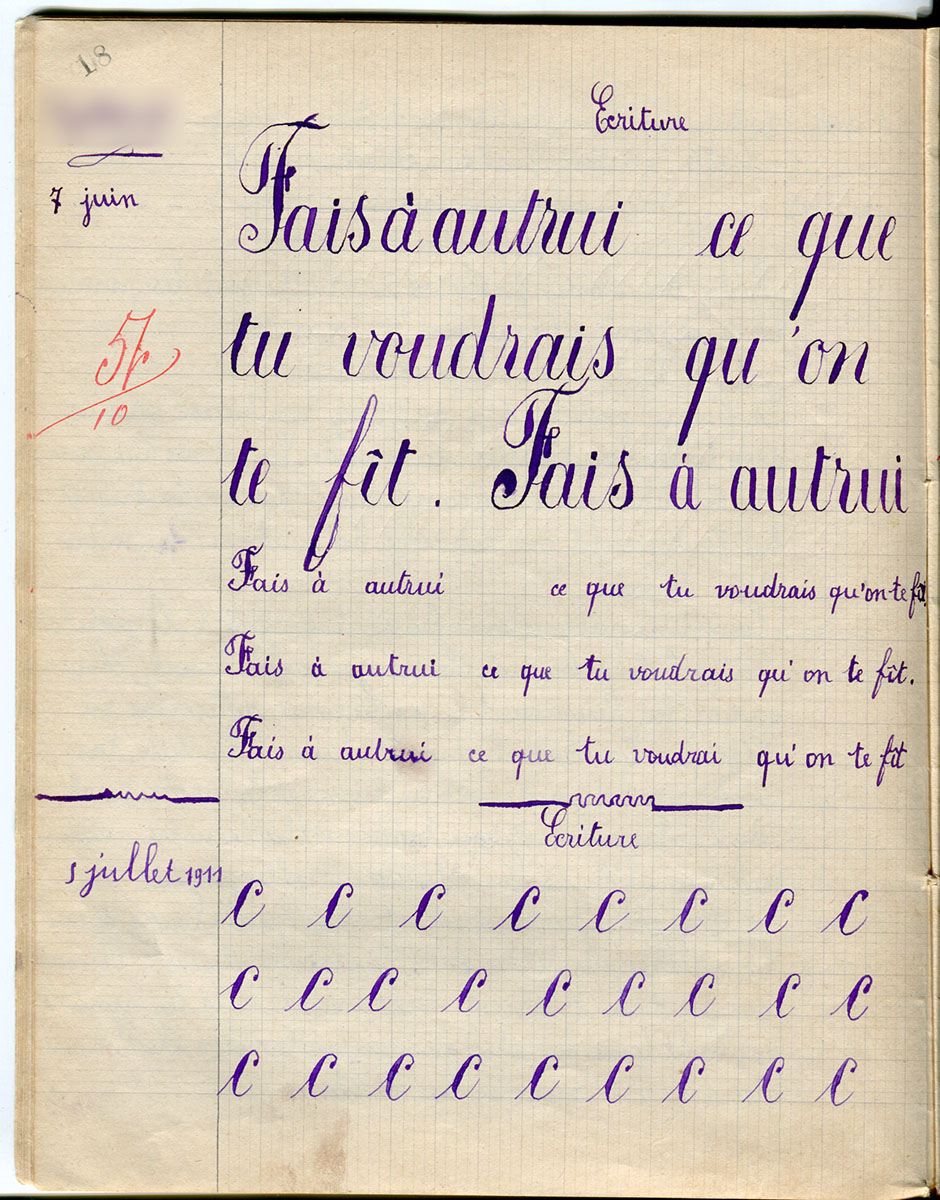 18
Ecriture
7 juin
Fais à autrui ce que
tu voudrais qu'on
te fît. Fais à autrui
10
Fais à autrui ce que tu voudrais qu'on te fît.
Fais à autrui ce que tu voudrais qu'on te fît.
Fais à autrui ce que tu voudrai qu'on te fît
Ecriture
5 juillet 1911
c c c c c c c c
c c c c c c c c c
c c c c c c c c c